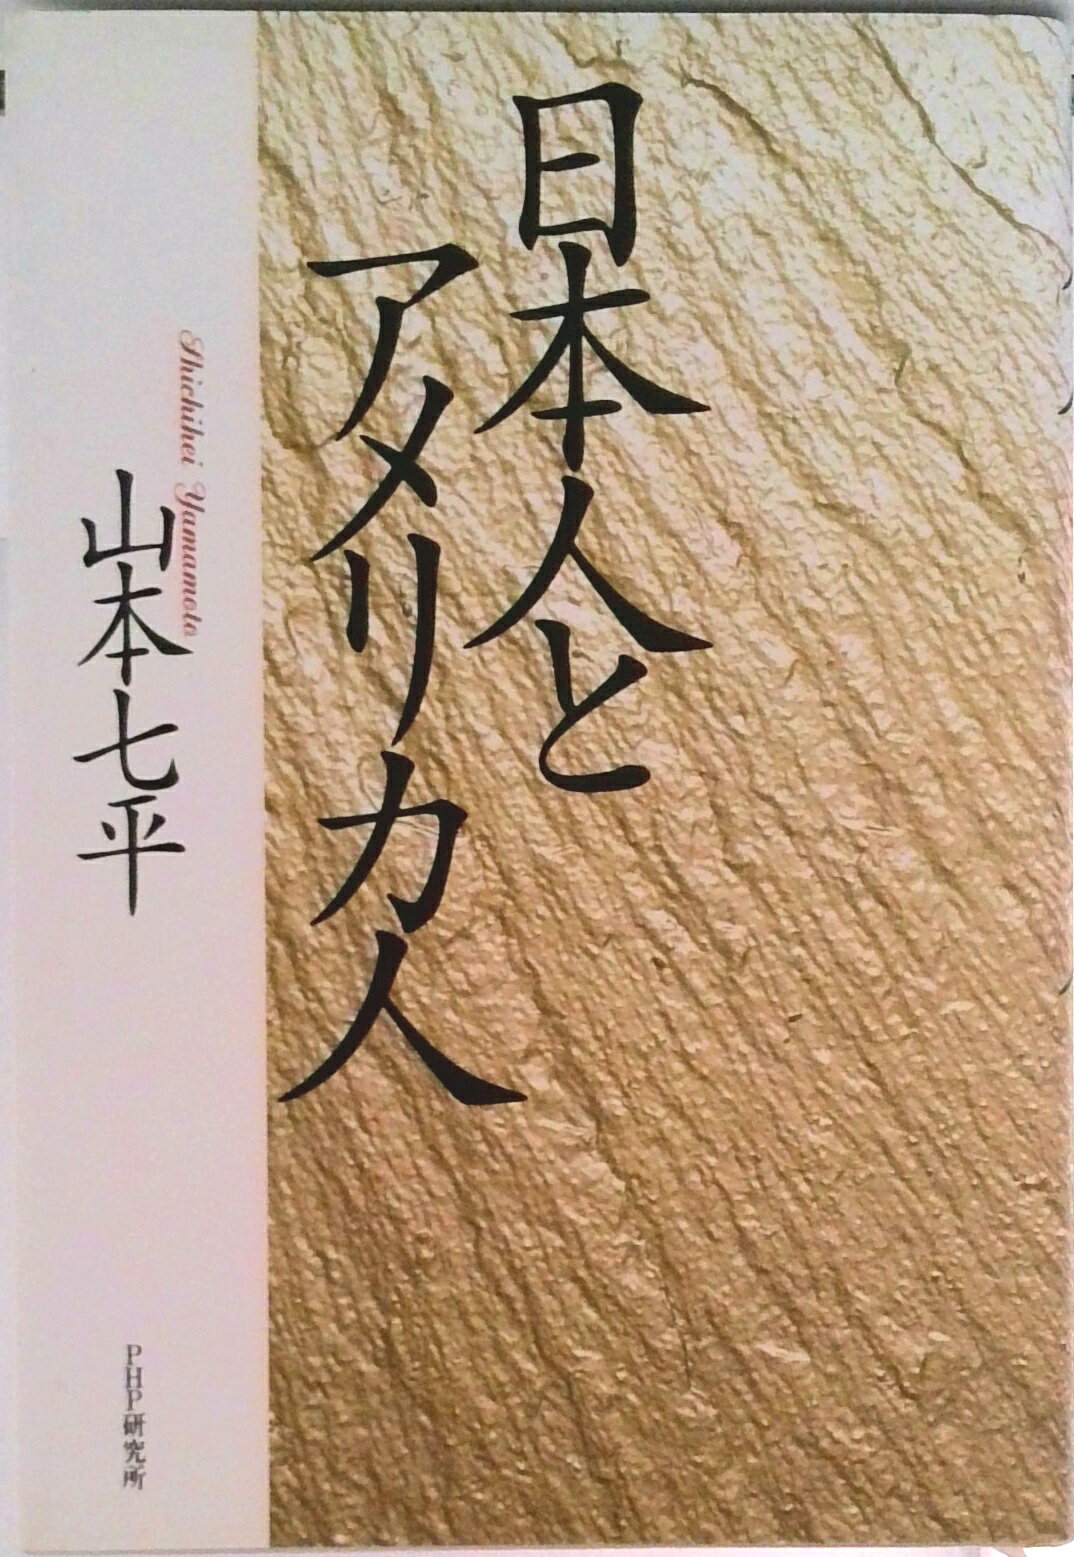 日本人と
アメリカ人
Shichihei Yamamoto
山本七平
PHP研究所